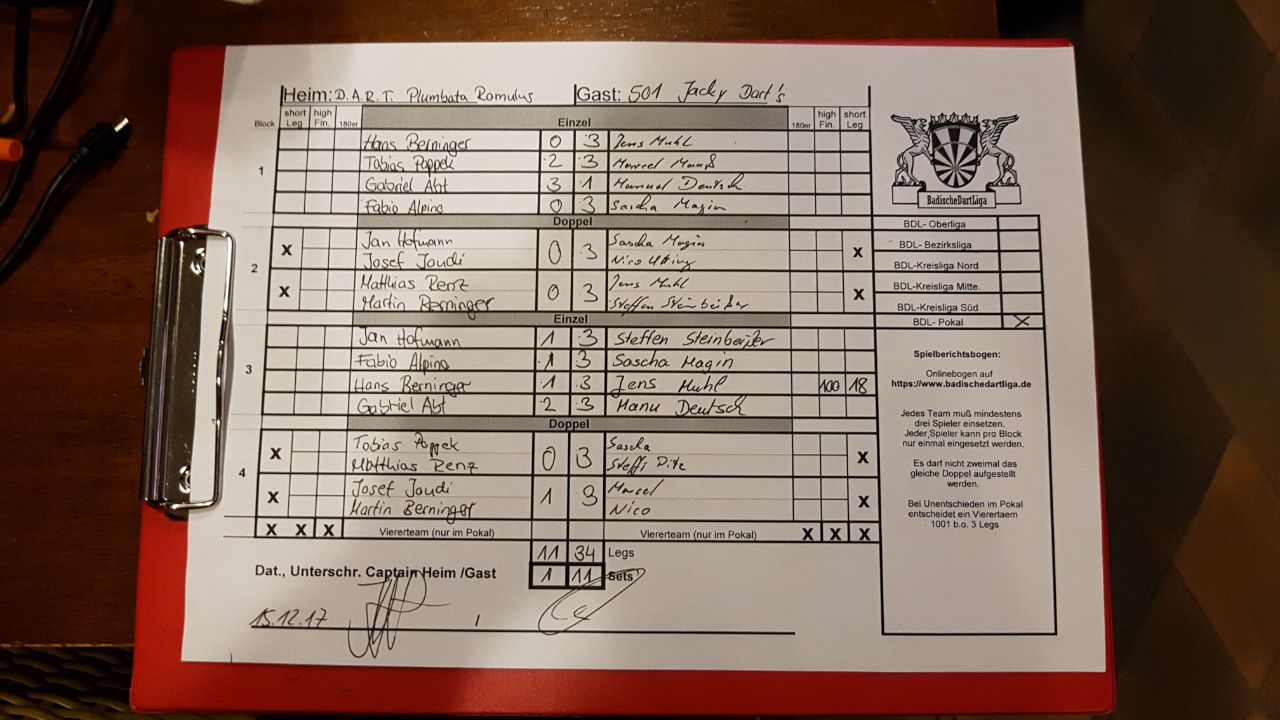 Heim: D.A.R.T. Plumbata Romulus Gast: 501 Jacky Dart's
Block short Leg high Fin. 180er Einzel 180er high Fin. short Leg
1
Hans Berninger 0 3 Jens Muhl
Tobias Poppek 2 3 Marcel Maaß
Gabriel Abt 3 1 Manuel Deutsch
Fabio Alpino 0 3 Sascha Magin
Doppel
2
X Jan Hofmann 0 3 Sascha Magin X
Josef Joudi Nico
X Matthias Renz 0 3 Jens Muhl X
Martin Berninger Steffen Steinbeißer
Einzel
3
Jan Hofmann 1 3 Steffen Steinbeißer
Fabio Alpino 1 3 Sascha Magin
Hans Berninger 1 3 Jens Muhl 100 18
Gabriel Abt 2 3 Manu Deutsch
Doppel
4
X Tobias Poppek 0 3 Sascha X
Matthias Renz Steffi
X Josef Joudi 1 3 Marcel X
Martin Berninger Nico
X X X Viererteam (nur im Pokal) Viererteam (nur im Pokal) X X X
11 34 Legs
Dat., Unterschr. Captain Heim /Gast 1 11 Sets
15.12.17
BadischeDartLiga
BDL- Oberliga
BDL- Bezirksliga
BDL-Kreisliga Nord
BDL-Kreisliga Mitte.
BDL-Kreisliga Süd
BDL- Pokal X
Spielberichtsbogen:
Onlinebogen auf
https://www.badischedartliga.de
Jedes Team muß mindestens
drei Spieler einsetzen.
Jeder Spieler kann pro Block
nur einmal eingesetzt werden.
Es darf nicht zweimal das
gleiche Doppel aufgestellt
werden.
Bei Unentschieden im Pokal
entscheidet ein Vierertaem
1001 b.o. 3 Legs